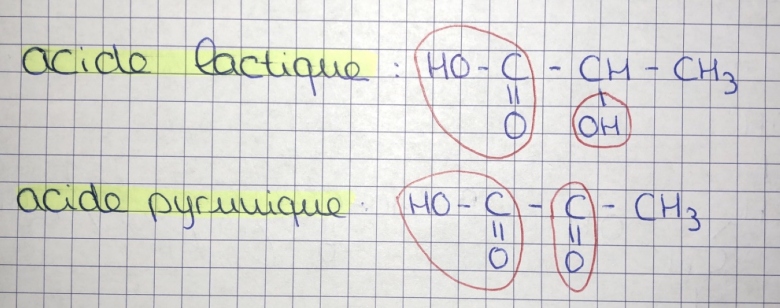 acide lactique : HO - C - CH - CH3
||
O OH
acide pyruvique : HO - C - C - CH3
|| ||
O O